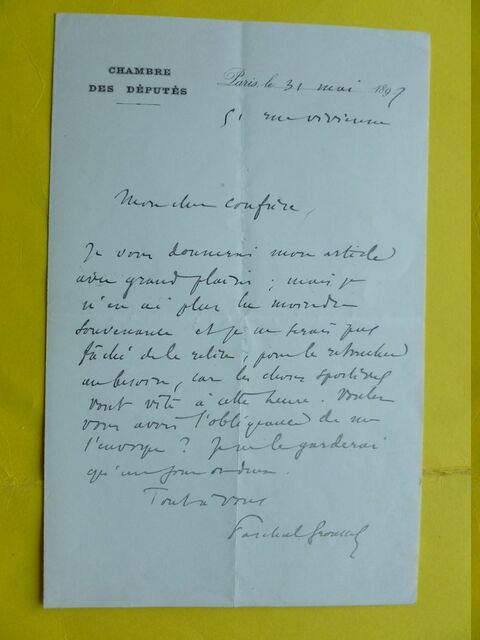 CHAMBRE
DES DÉPUTÉS
Paris, le 31 mai 1897
51 rue Vivienne
Mon cher confrère,
Je vous donnerai mon article
avec grand plaisir ; mais je
n'en ai plus la moindre
souvenance et je ne serais pas
fâché de le relire, pour le retoucher
au besoin, car les choses sportives
vont vite à cette heure. Voulez
vous avoir l'obligeance de me
l'envoyer ? Je ne le garderai
qu'un jour ou deux.
Tout à vous
Paschal Grousset